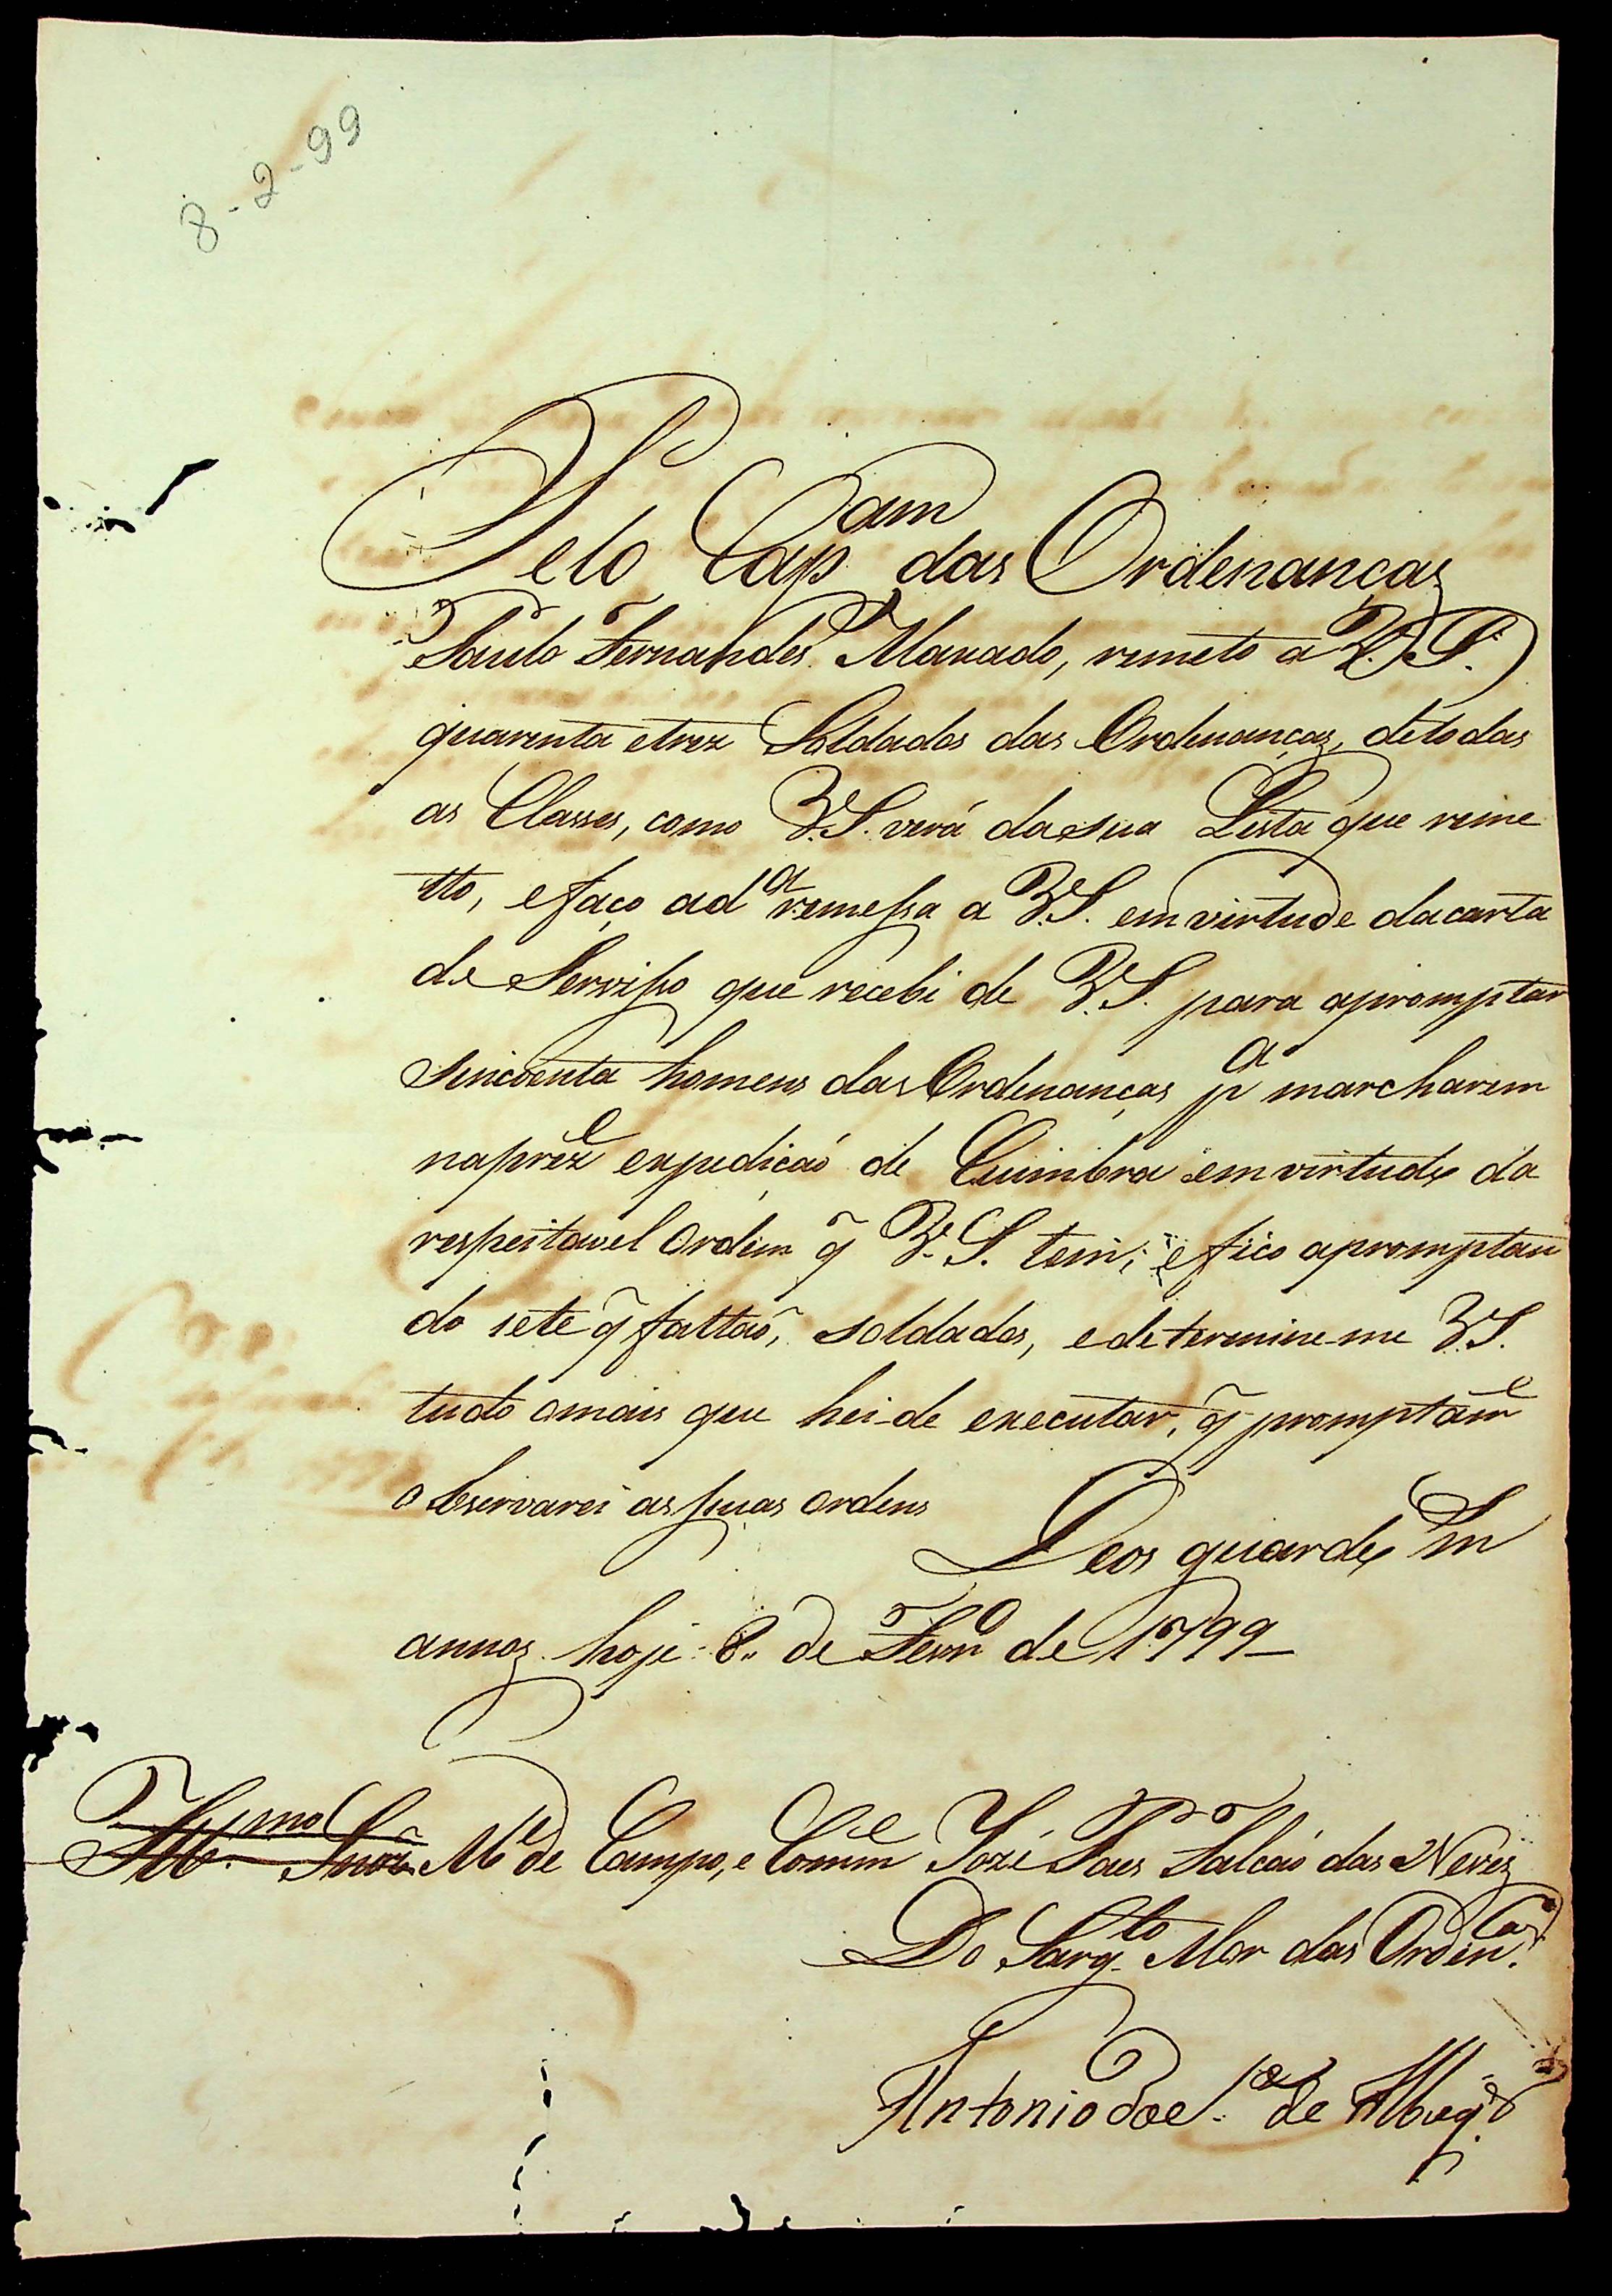 8-2-99
Pelo Cap.am das Ordenanças
Paulo Fernandes Maxado, remeto a V. S.
quarenta etrez Soldados das Ordenanças, detodas
as Classes, como V.S. verá dasua Lista que reme
tto, efaço ad.a remessa a V.S. emvirtude dacarta
de Servisso que recebi de V.S. para apromptar
sincoenta homens das Ordenanças p.a marcharem
naprêz.e expedicaõ de Cuimbra emvirtude da
respeitavel Ordem q̃ V.S. tem; efico apromptan
do sete q̃ faltaõ, soldados, edetermine-me V.S.
tudo omais que hei-de executar, q̃ promptam.e
observarei assuas ordens
Deos guarde m
annos hoje 8. de Fevr.o de 1799
Ill.mo Snr. M.e de Campo, e Comm.e Jozé Paes Falcaõ das Neves
Do Sarg.to Mor das Orden.ças
Antonio de Albuq.